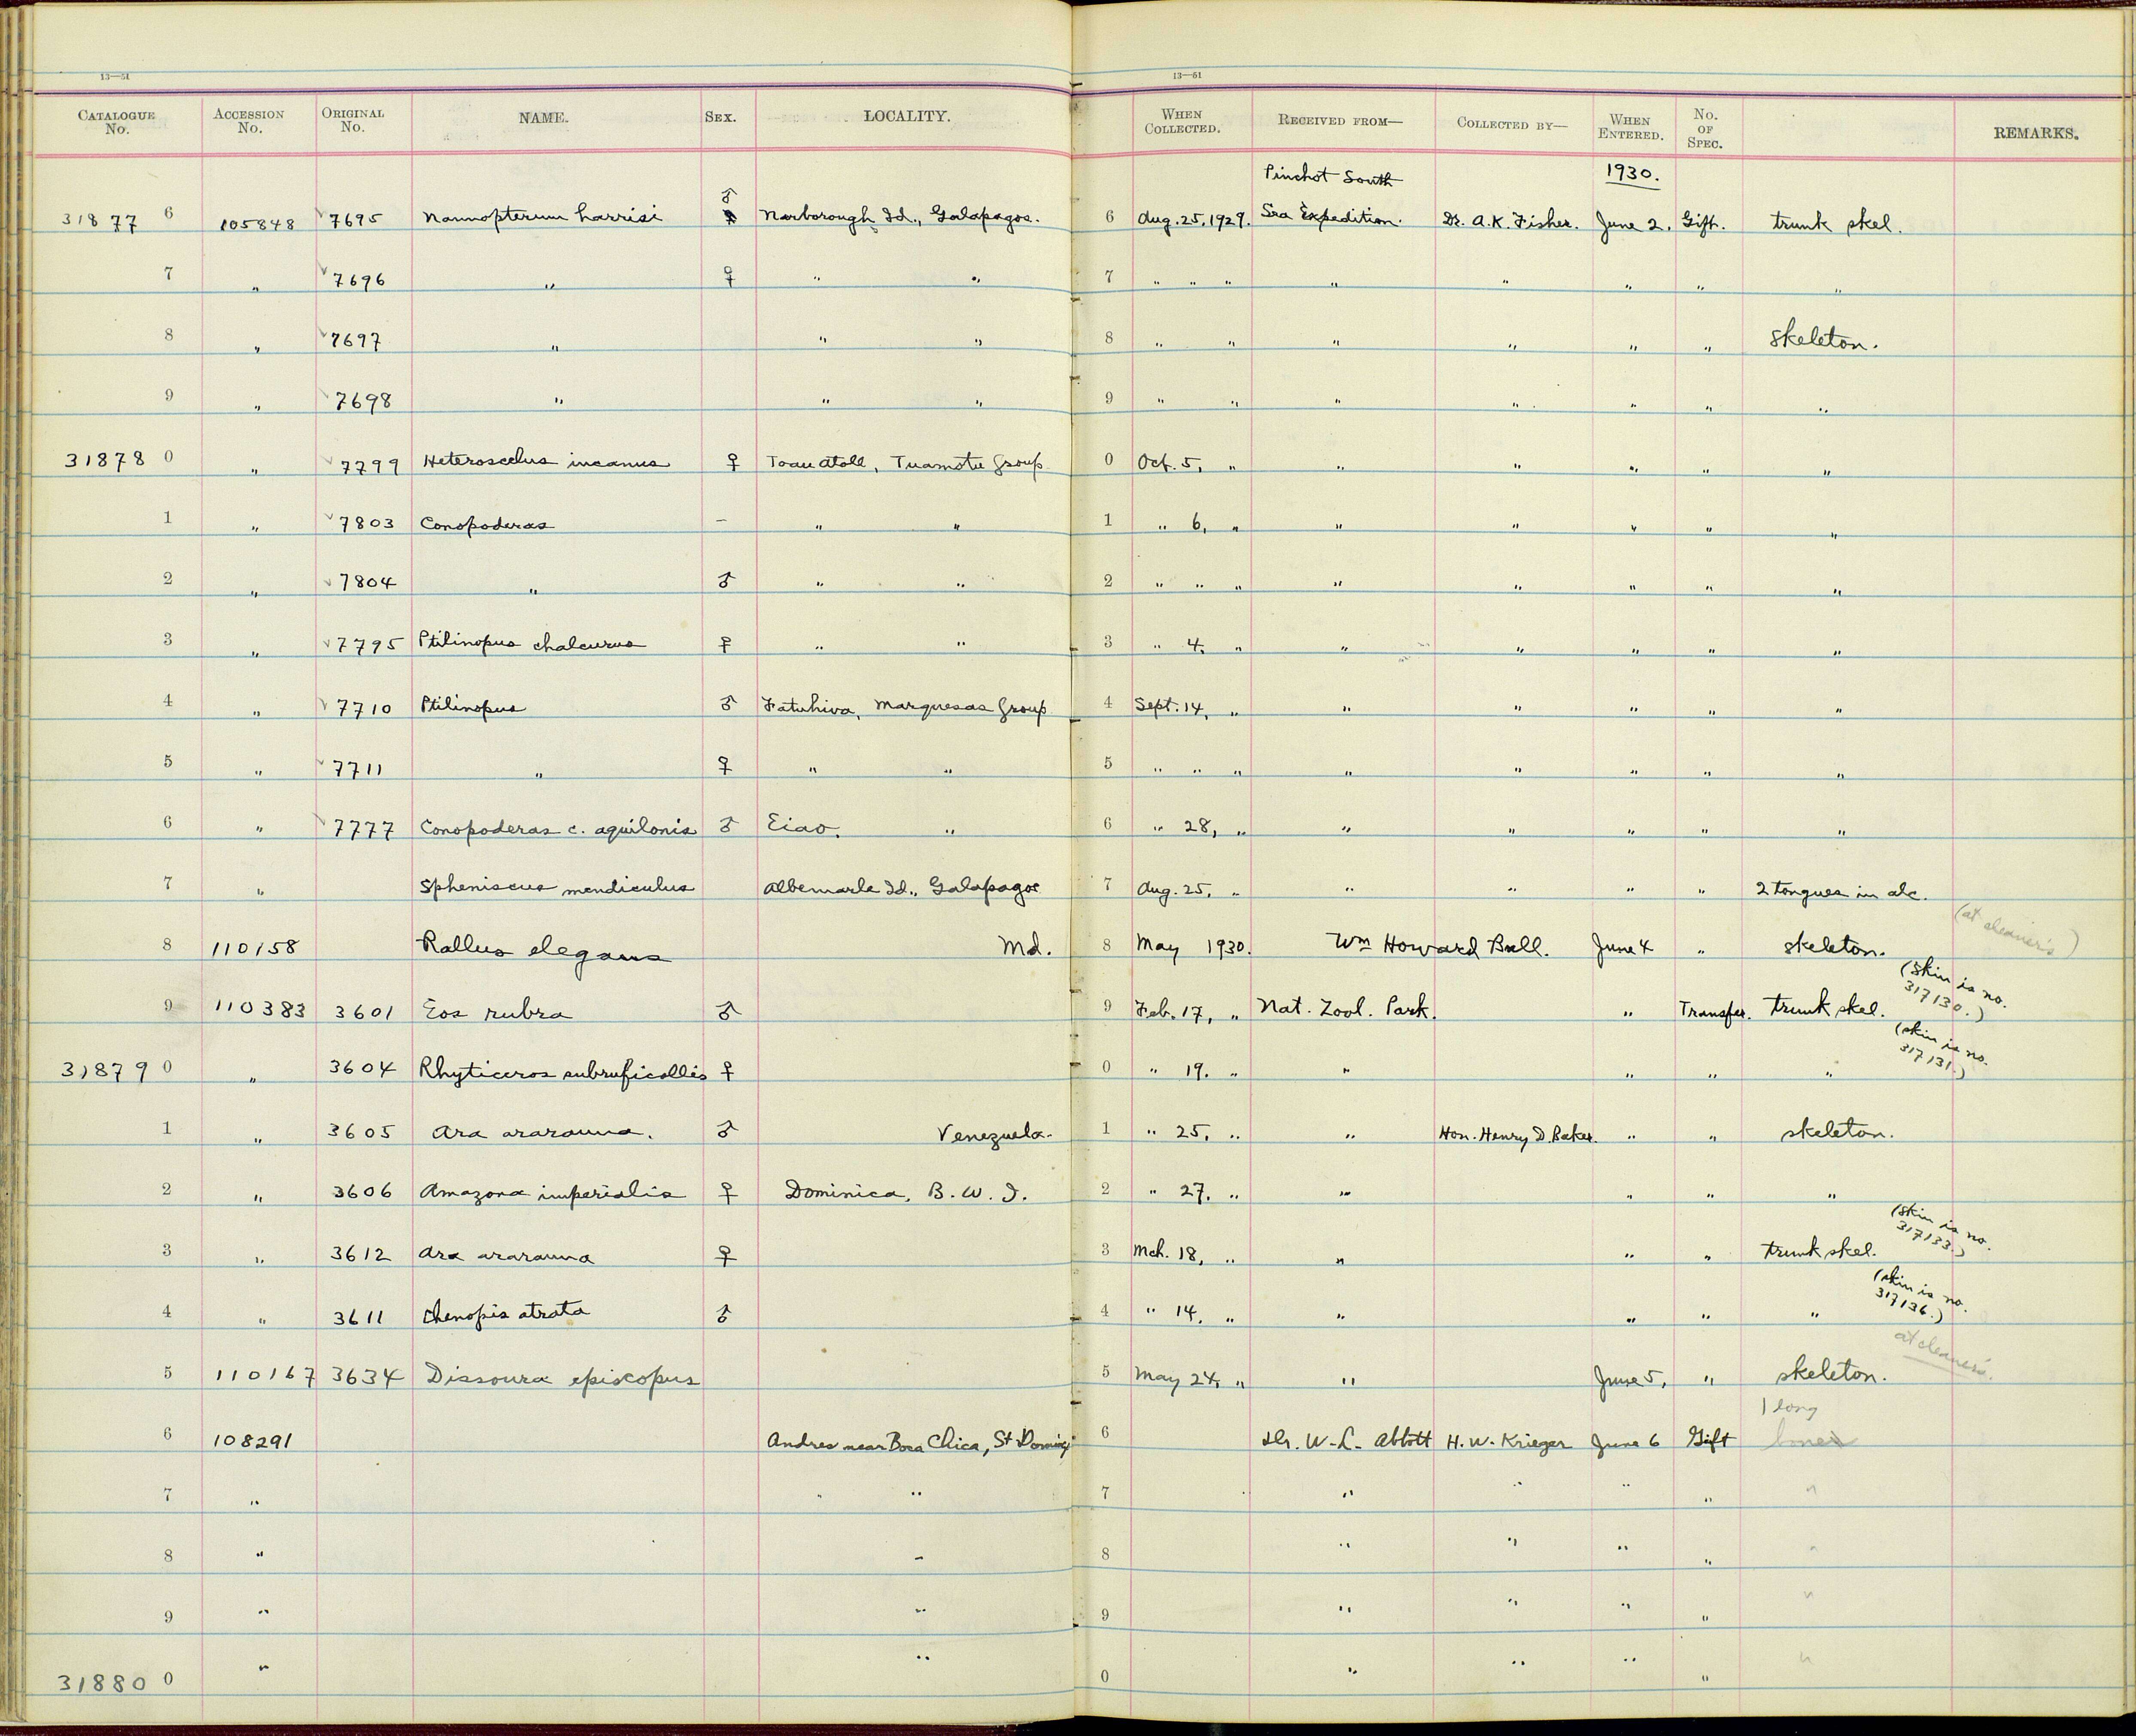 13—51 13—51
CATALOGUE No. ACCESSION No. ORIGINAL No. NAME. SEX. LOCALITY. WHEN COLLECTED. RECEIVED FROM— COLLECTED BY— WHEN ENTERED. No. OF SPEC. REMARKS.
Pinchot South 1930.
31877 6 105848 7695 Nannopterum harrisi ♂ Narborough Id., Galapagos. 6 Aug. 25, 1929. Sea Expedition. Dr. A.K. Fisher. June 2, Gift. trunk skel.
7 " 7696 " ♀ " " 7 " " " " " " " "
8 " 7697 " " " 8 " " " " " " skeleton.
9 " 7698 " " " 9 " " " " " " "
31878 0 " 7799 Heteroscelus incanus ♀ Toau Atoll, Tuamotu Group 0 Oct. 5, " " " " " "
1 " 7803 Conopoderas – " " 1 " 6, " " " " " "
2 " 7804 " ♂ " " 2 " " " " " " " "
3 " 7795 Ptilinopus chalcurus ♀ " " 3 " 4, " " " " " "
4 " 7710 Ptilinopus ♂ Fatuhiva, Marquesas Group 4 Sept. 14, " " " " " "
5 " 7711 " ♀ " " 5 " " " " " " " "
6 " 7777 Conopoderas c. aquilonis ♂ Eiao. " 6 " 28, " " " " " "
7 " Spheniscus mendiculus Albemarle Id., Galapagos 7 Aug. 25, " " " " " 2 tongues in alc.
8 110158 Rallus elegans Md. 8 May 1930. Wm Howard Ball. June 4 " skeleton. (at cleaner's)
9 110383 3601 Eos rubra ♂ 9 Feb. 17, " Nat. Zool. Park. " Transfer. trunk skel. (skin is no. 317130.)
31879 0 " 3604 Rhyticeros subruficollis ♀ 0 " 19. " " " " " (skin is no. 317131.)
1 " 3605 Ara ararauna. ♂ Venezuela. 1 " 25, " " Hon. Henry D. Baker. " " skeleton.
2 " 3606 Amazona imperialis ♀ Dominica, B.W.I. 2 " 27, " " " " "
3 " 3612 Ara ararauna ♀ 3 Mch. 18, " " " " trunk skel. (skin is no. 317133.)
4 " 3611 Chenopis atrata ♂ 4 " 14, " " " " " (skin is no. 317136.)
5 110167 3634 Dissoura episcopus 5 May 24, " " June 5, " skeleton. at cleaner's.
1 long
6 108291 Andres near Boca Chica, St Doming 6 Dr. W. L. Abbott H. W. Krieger June 6 Gift bone
7 " " " 7 " " " " "
8 " " 8 " " " " "
9 " " 9 " " " " "
31880 0 " " 0 " " " " "